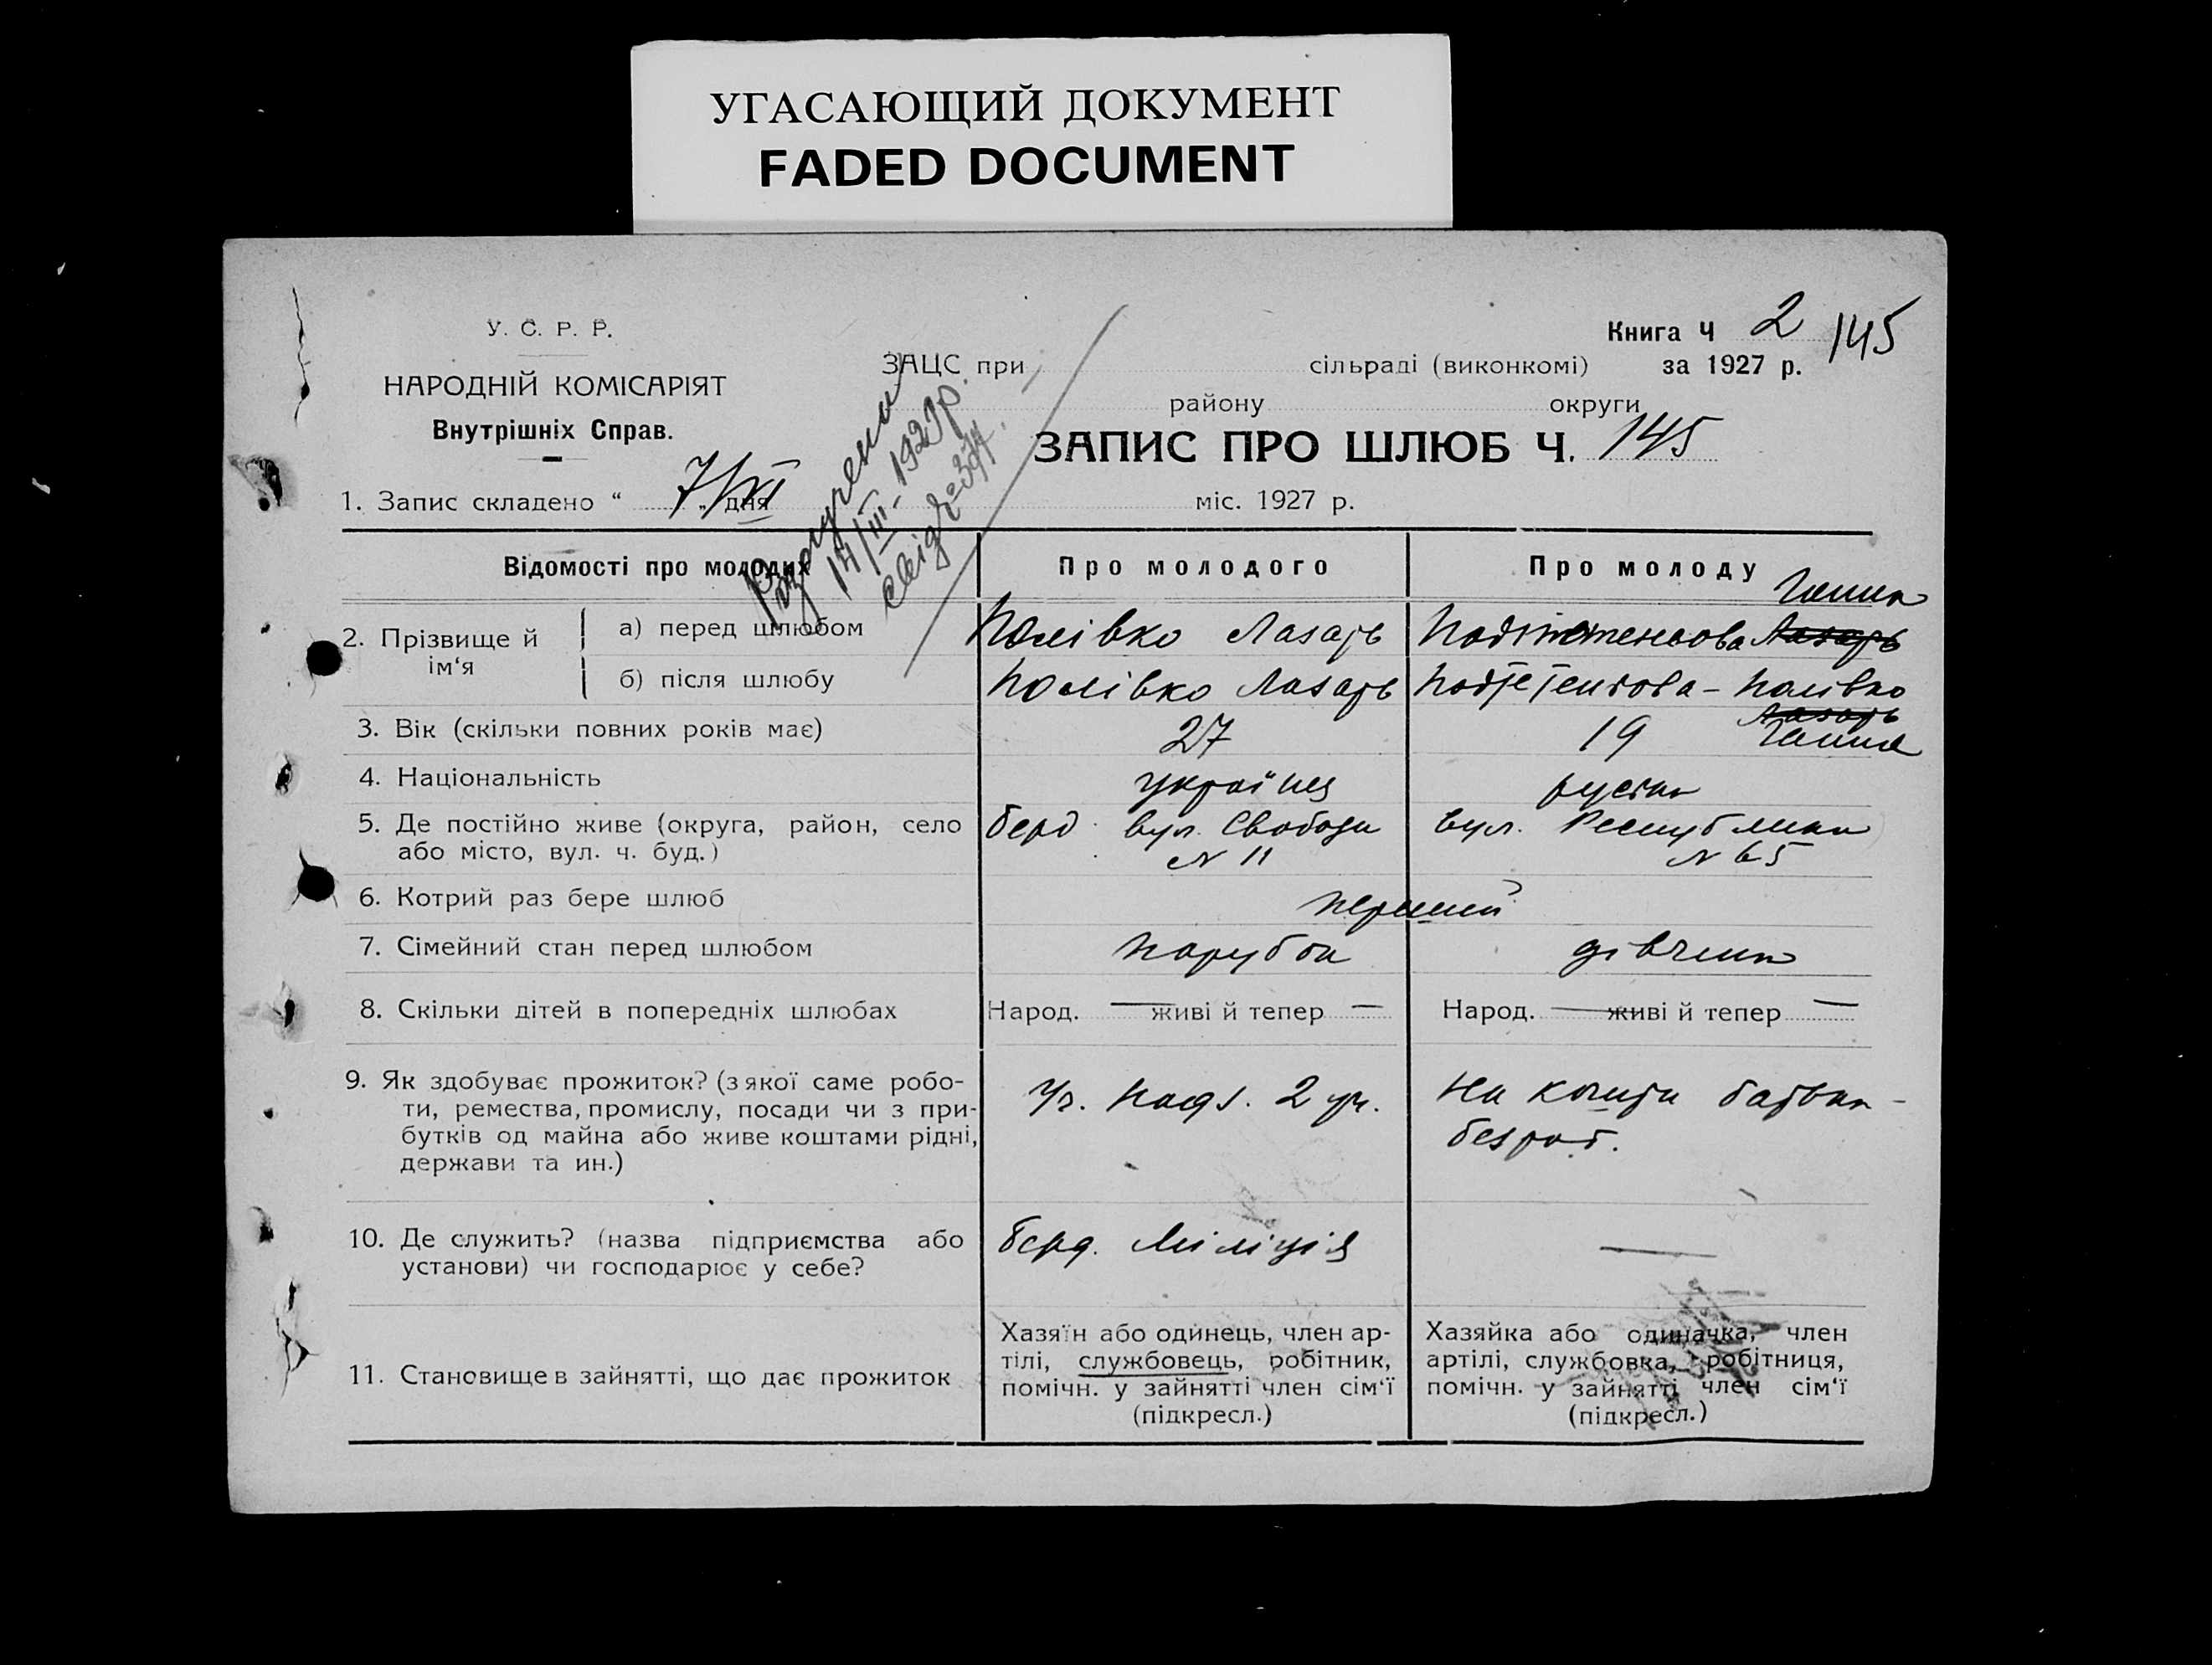 УГАСАЮЩИЙ ДОКУМЕНТ
FADED DOCUMENT
У. С. Р. Р.
НАРОДНІЙ КОМІСАРІЯТ
Внутрішніх Справ.
Книга Ч 2 145
ЗАЦС при сільраді (виконкомі) за 1927 р.
району округи
ЗАПИС ПРО ШЛЮБ Ч. 145
1. Запис складено “ 7/XI „ дня міс. 1927 р.
14/III-1929р.
Відомості про молодих Про молодого Про молоду
Ганна
2. Прізвище й ім‘я
а) перед шлюбом Полівко Лазарь Лазарь
б) після шлюбу Полівко Лазарь Полівко
Лазарь
3. Вік (скільки повних років має) 27 19 Ганна
4. Національність українец руська
5. Де постійно живе (округа, район, село Берд. вул. Свободи вул. Республики
або місто, вул. ч. буд.) N 11 N 65
6. Котрий раз бере шлюб перший
7. Сімейний стан перед шлюбом парубок дівчина
8. Скільки дітей в попередніх шлюбах Народ. — живі й тепер — Народ. — живі й тепер —
9. Як здобуває прожиток? (з якої саме робо-
ти, ремества, промислу, посади чи з при-
бутків од майна або живе коштами рідні,
держави та ин.)
Уч. Надз. 2 уч.
На кошти батька -
безроб.
10. Де служить? (назва підприємства або
установи) чи господарює у себе?
Берд. Міліція
—
11. Становище в зайнятті, що дає прожиток
Хазяїн або одинець, член ар-
тілі, службовець, робітник,
помічн. у зайнятті член сім‘ї
(підкресл.)
Хазяйка або одиначка, член
артілі, службовка, робітниця,
помічн. у зайнятті член сім‘ї
(підкресл.)